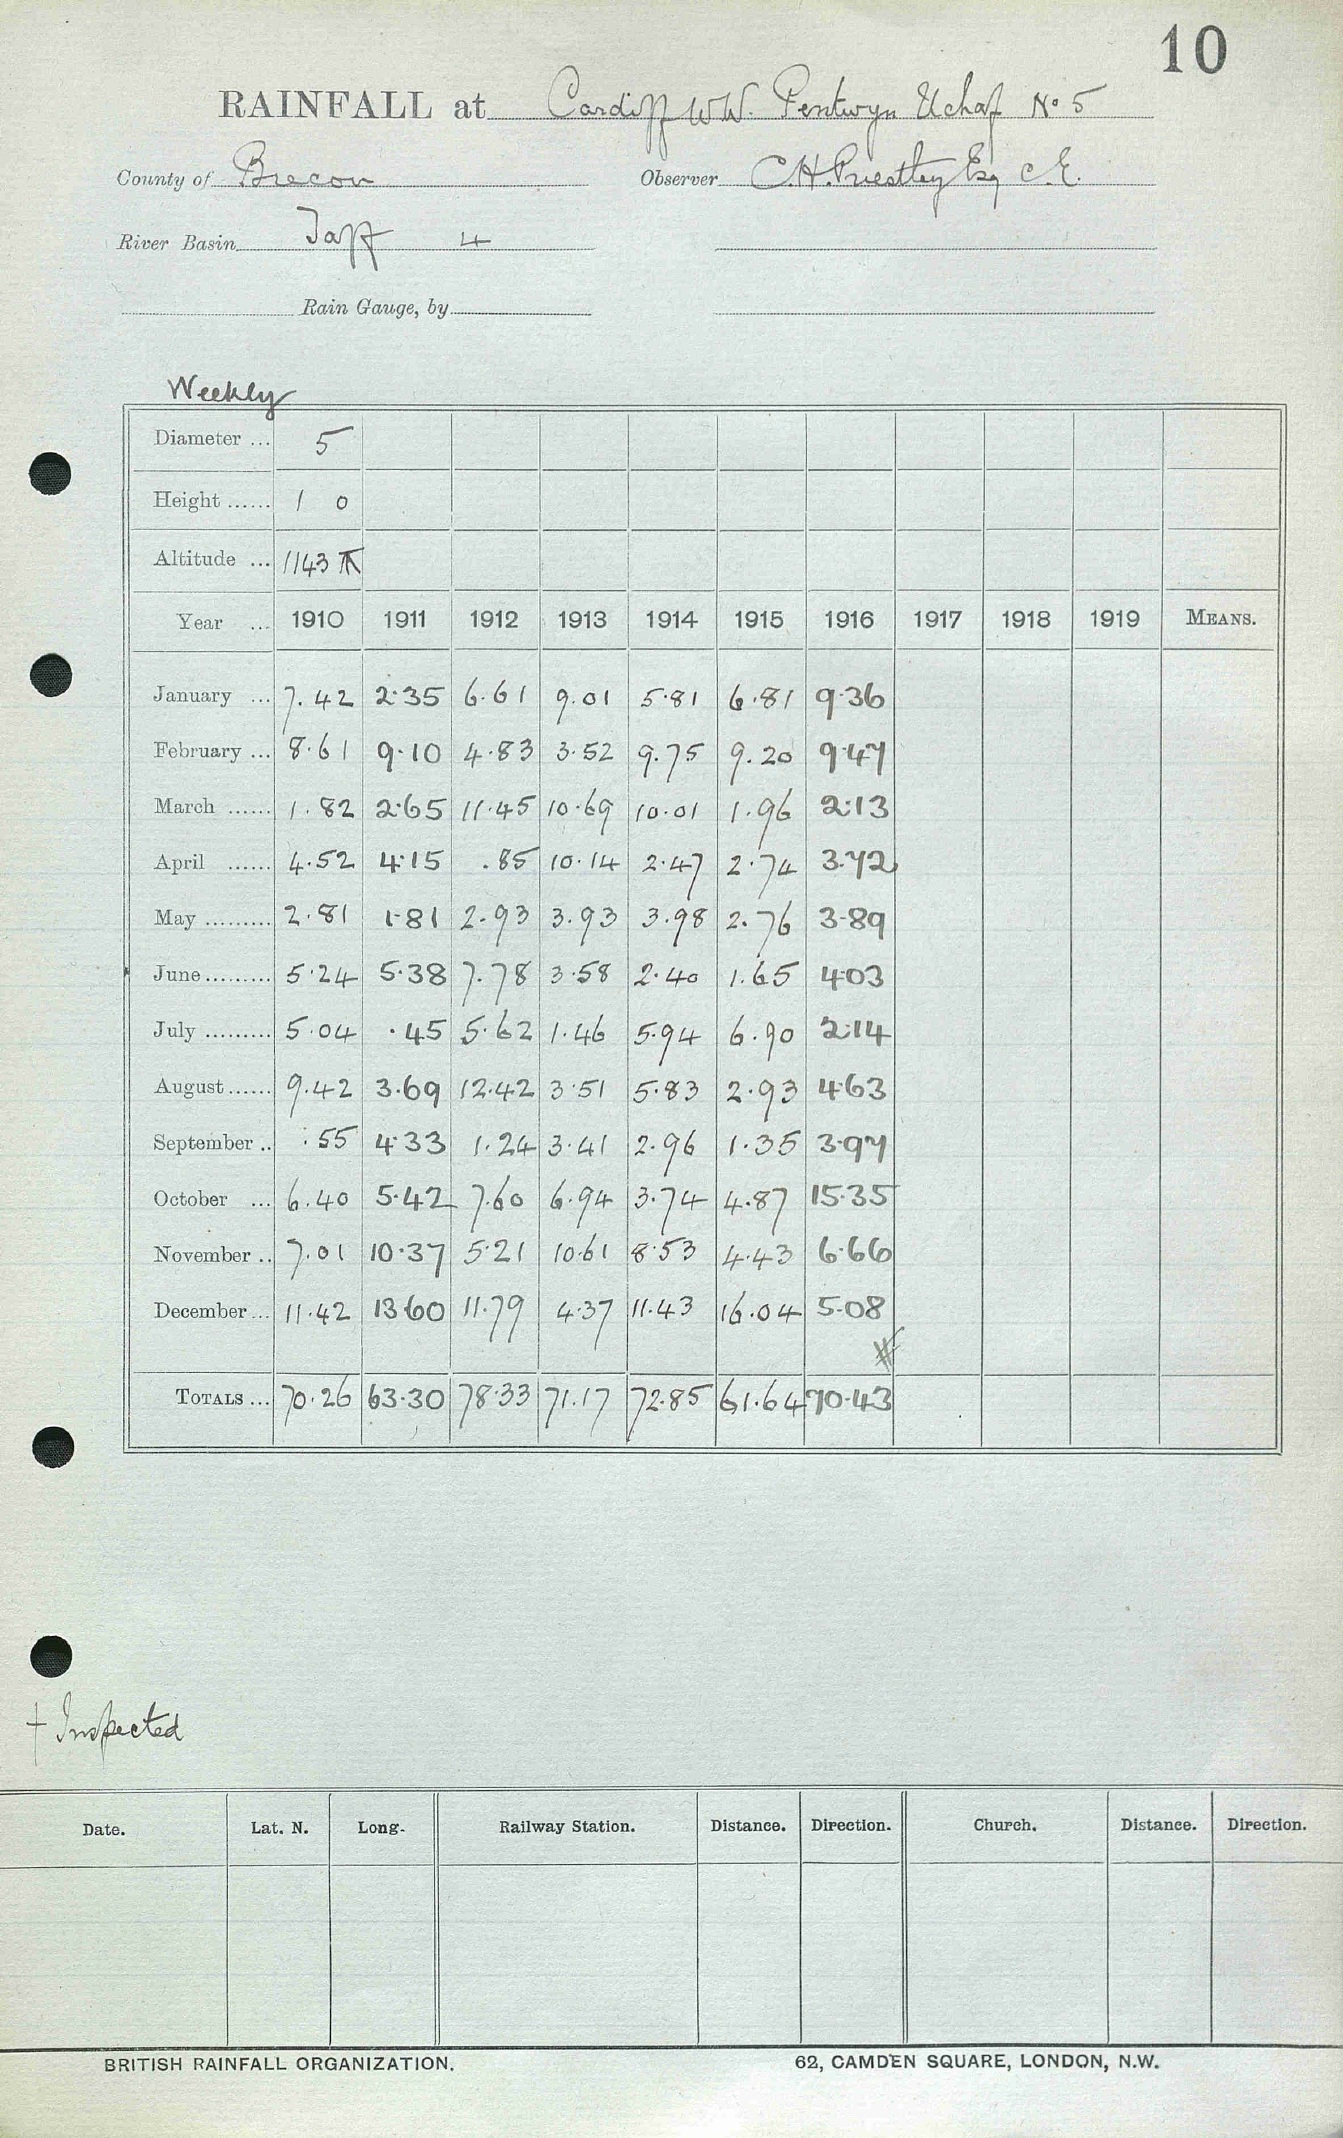 10
RAINFALL at Cardiff W.W. Pentwyn Uchaf No 5
County of Brecon Observer C.H. Priestley Esq C.E.
River Basin Taff 4
Rain Gauge, by
Weekly
Diameter ... 5
Height ...... 1 0
Altitude ... 1143
Year ... 1910 1911 1912 1913 1914 1915 1916 1917 1918 1919 MEANS.
January ... 7.42 2.35 6.61 9.01 5.81 6.81 9.36
February ... 8.61 9.10 4.83 3.52 9.75 9.20 9.47
March ...... 1.82 2.65 11.45 10.69 10.01 1.96 2.13
April ...... 4.52 4.15 .85 10.14 2.47 2.74 3.72
May ......... 2.81 1.81 2.93 3.93 3.98 2.76 3.89
June ......... 5.24 5.38 7.78 3.58 2.40 1.65 4.03
July ......... 5.04 .45 5.62 1.46 5.94 6.90 2.14
August ...... 9.42 3.69 12.42 3.51 5.83 2.93 4.63
September .. .55 4.33 1.24 3.41 2.96 1.35 3.97
October ... 6.40 5.42 7.60 6.94 3.74 4.87 15.35
November .. 7.01 10.37 5.21 10.61 8.53 4.43 6.66
December ... 11.42 13.60 11.79 4.37 11.43 16.04 5.08
TOTALS ... 70.26 63.30 78.33 71.17 72.85 61.64 70.43
† Inspected
Date. Lat. N. Long. Railway Station. Distance. Direction. Church. Distance. Direction.
BRITISH RAINFALL ORGANIZATION. 62, CAMDEN SQUARE, LONDON, N.W.